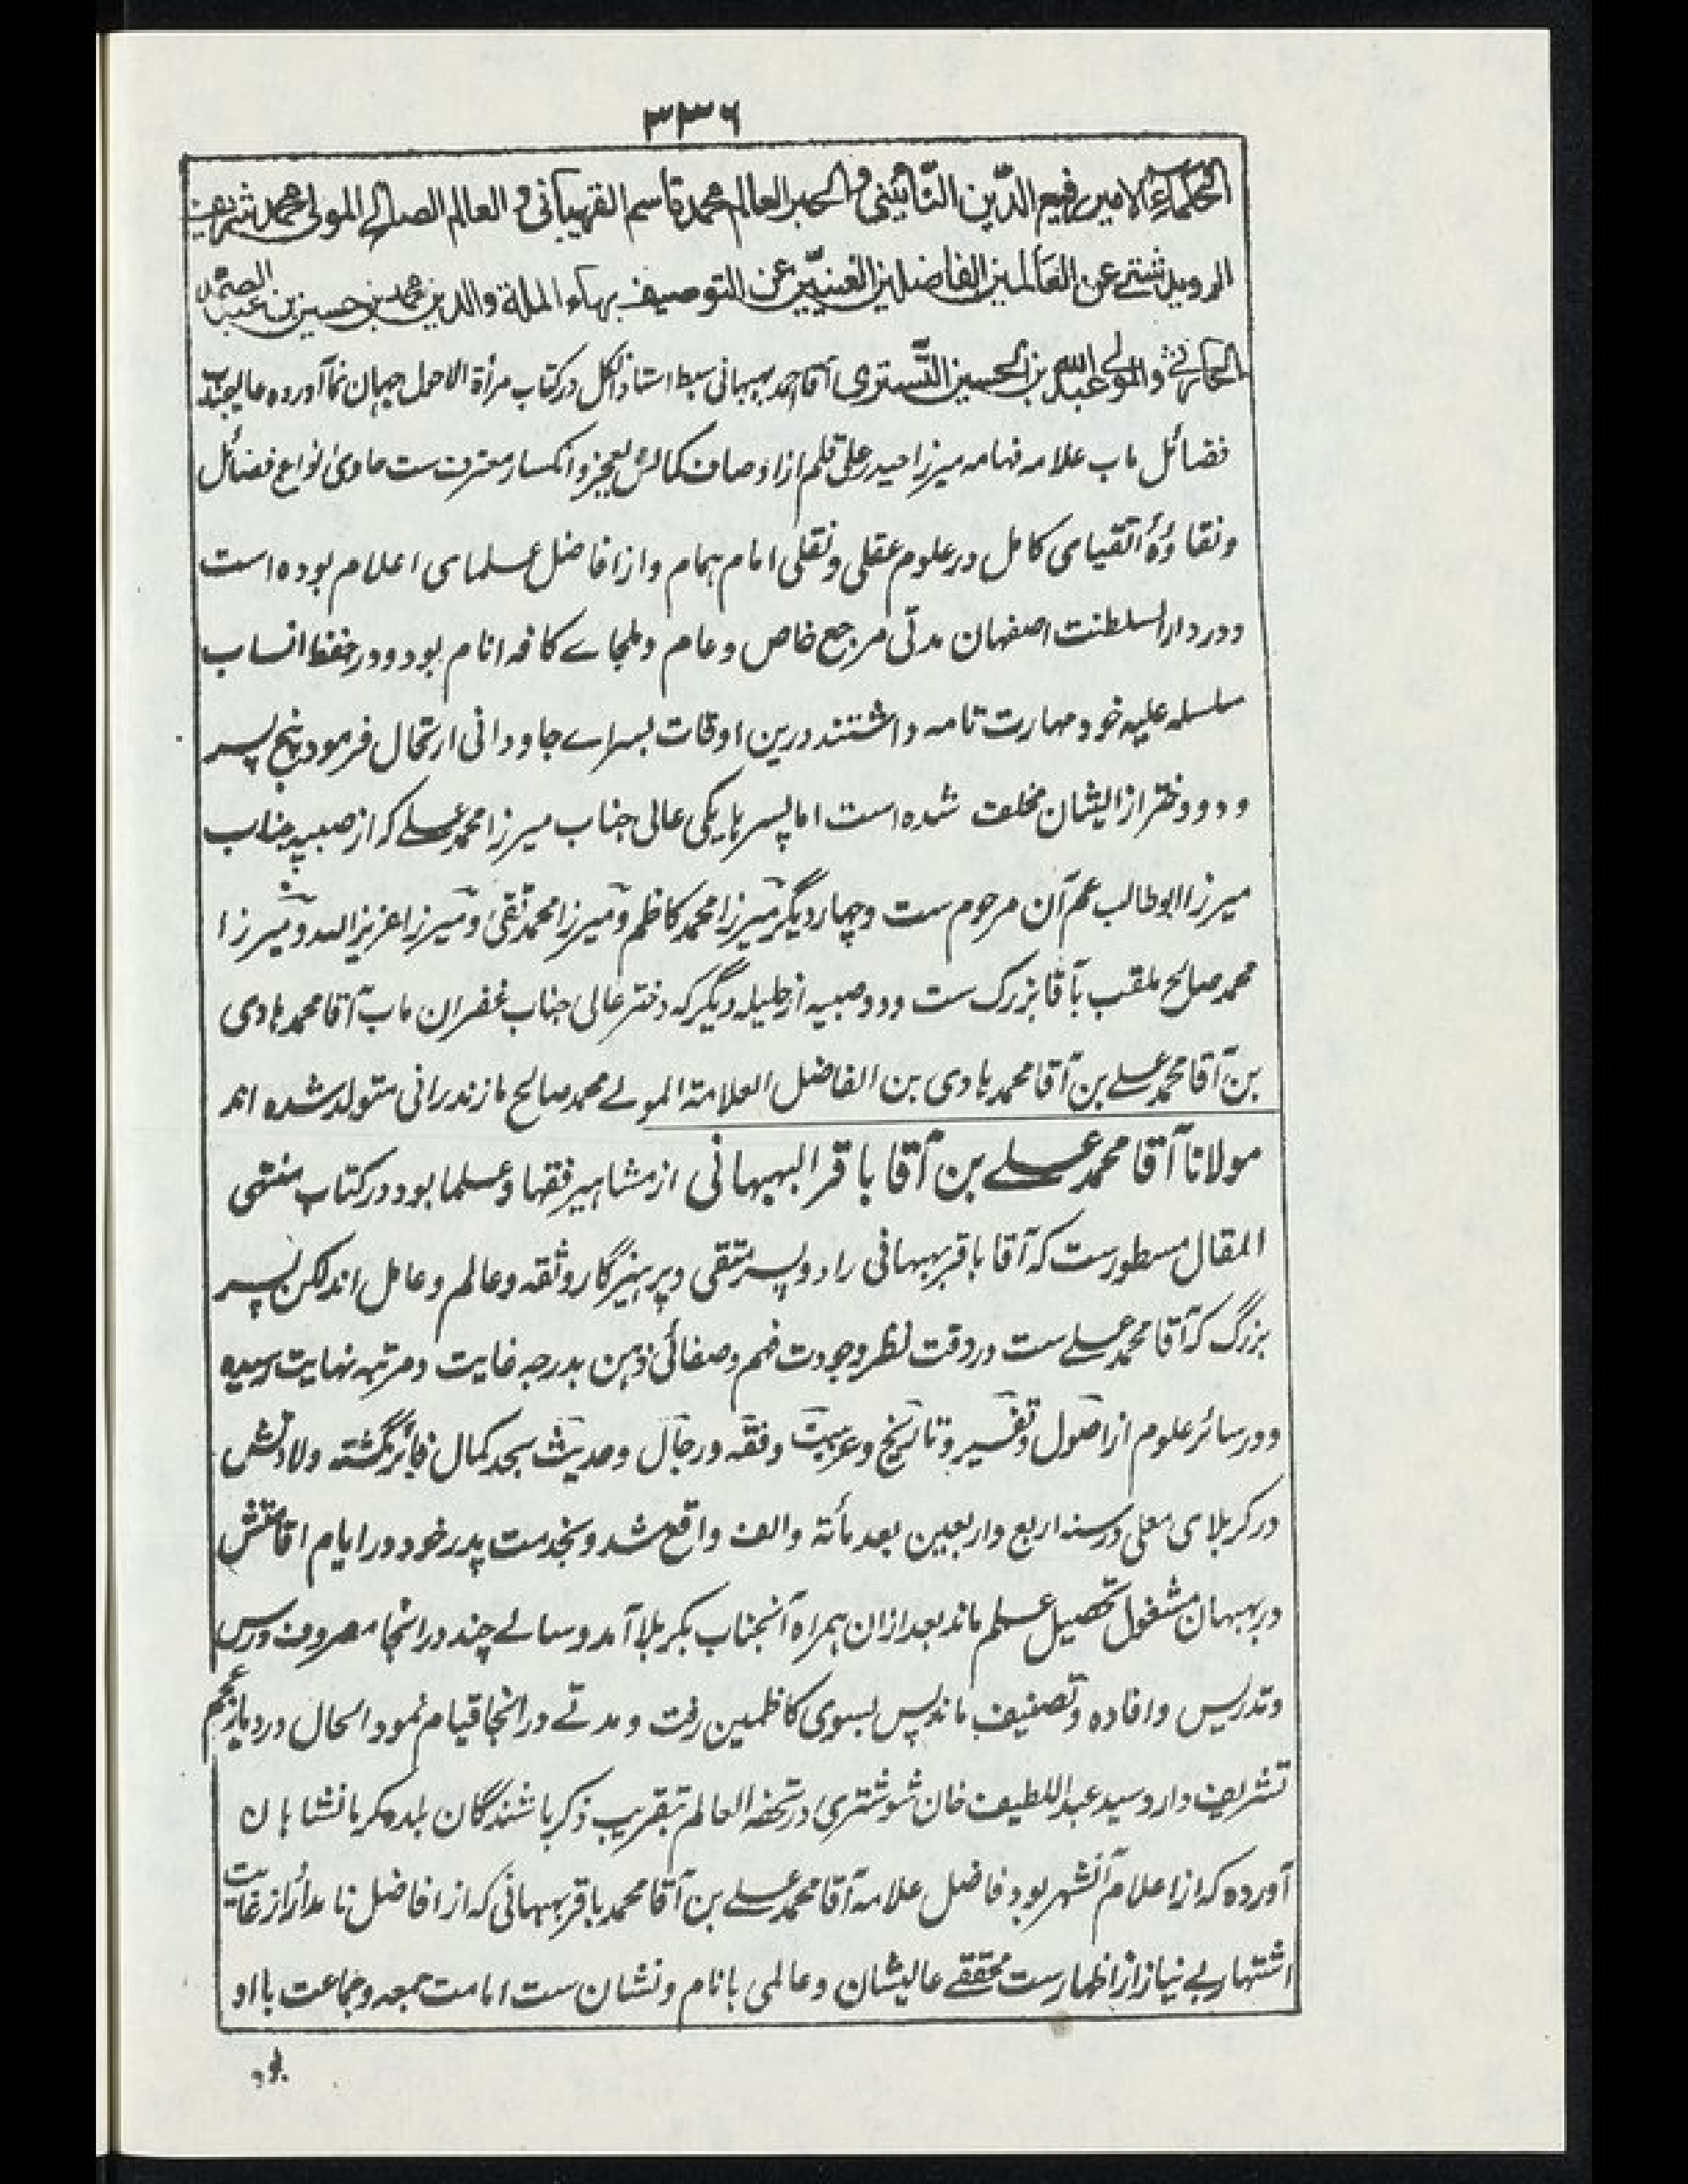 ۳۳۶
الحکماء الامیر رفیع الدّین النّائینی و الحبر العالم محمد قاسم القهپائی و العالم الصالح المولی محمد شریف
الرویدشتے عن العَالمین الفاضلین الغنیّین عن التوصیف بهاء الملة والدین محمد بن حسین بن عبد الصمد
الحارثی والمولے عبدالله بن الحسین التّستری آقا احمد بهبهانی سبط استاذ الکل در کتاب مرأة الاحوال جهان نما آورده عالیجناب
فضائل مآب علامه فهامه میرزا حیدر علی قلم از اوصاف کمالش بعجز و انکسار معترف ست حاوی انواع فضائل
ونقاوهٔ اتقیای کامل در علوم عقلی و نقلی امام همام و از افاضل علمای اعلام بوده است
و در دار السلطنت اصفهان مدتی مرجع خاص و عام و ملجاے کافه انام بود و در حفظ انساب
سلسله علیه خود مهارت تامه داشتند درین اوقات بسراے جاودانی ارتحال فرمود پنج پسر
و دو دختر از ایشان مخلف شده است اما پسرها یکی عالی جناب میرزا محمد علے که از صبیه جناب
میرزا ابوطالب عم آن مرحوم ست و چهار دیگر میرزا محمد کاظم و میرزا محمد تقی و میرزا عزیز الله و میرزا
محمد صالح ملقب بآقا بزرگ ست و دو صبیه از حلیله دیگر که دختر عالی جناب غفران مآب آقا محمد هادی
بن آقا محمد علے بن آقا محمد هادی بن الفاضل العلامة المولے محمد صالح مازندرانی متولد شده اند
مولانا آقا محمد علے بن آقا باقر البهبهانی از مشاهیر فقها و علما بود در کتاب منتهی
المقال مسطورست که آقا باقر بهبهانی را دو پسر متقی و پرهیزگار و ثقه و عالم و عامل اند لکن پسر
بزرگ که آقا محمد علے ست در دقت نظر و جودت فهم و صفائی ذهن بدرجه غایت و مرتبه نهایت رسیده
و در سائر علوم از اصول و تفسیر و تاریخ و عربیت و فقه و رجال و حدیث بحد کمال فائز گشته ولادتش
در کربلای معلی در سنه اربع و اربعین بعد مأته والف واقع شد و بخدمت پدر خود در ایام اقامتش
در بهبهان مشغول تحصیل علم ماند بعد ازان همراه آنجناب بکربلا آمد و سالے چند در انجا مصروف درس
وتدریس و افاده و تصنیف ماند پس بسوی کاظمین رفت و مدتے در انجا قیام نمود الحال در دیار عجم
تشریف دارد سید عبد اللطیف خان شوشتری در تحفه العالم بتقریب ذکر باشندگان بلده کرمانشاهان
آورده که از اعلام آنشهر بود فاضل علامه آقا محمد علے بن آقا محمد باقر بهبهانی که از افاضل نامدار از غایت
اشتهار بے نیاز از اظهار ست محققے عالیشان و عالمی با نام و نشان ست امامت جمعه و جماعت با او